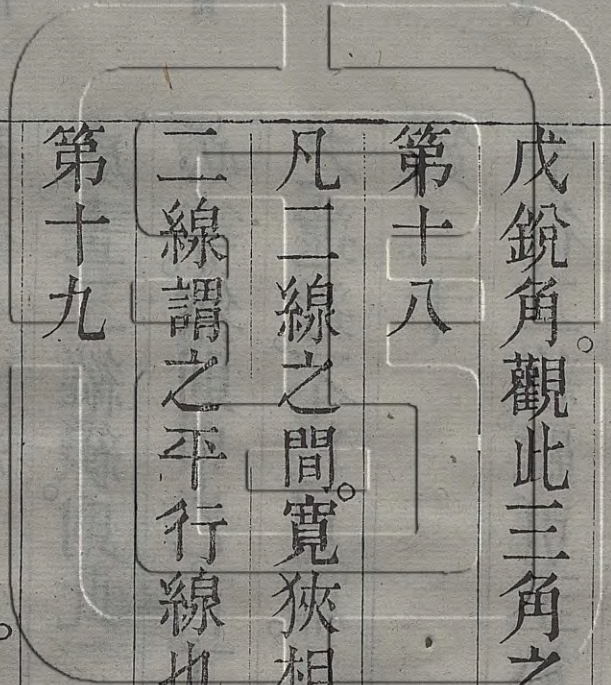 戊銳角。觀此三角之
第十八
凡二線之間。寬狹相
二線謂之平行線也
第十九